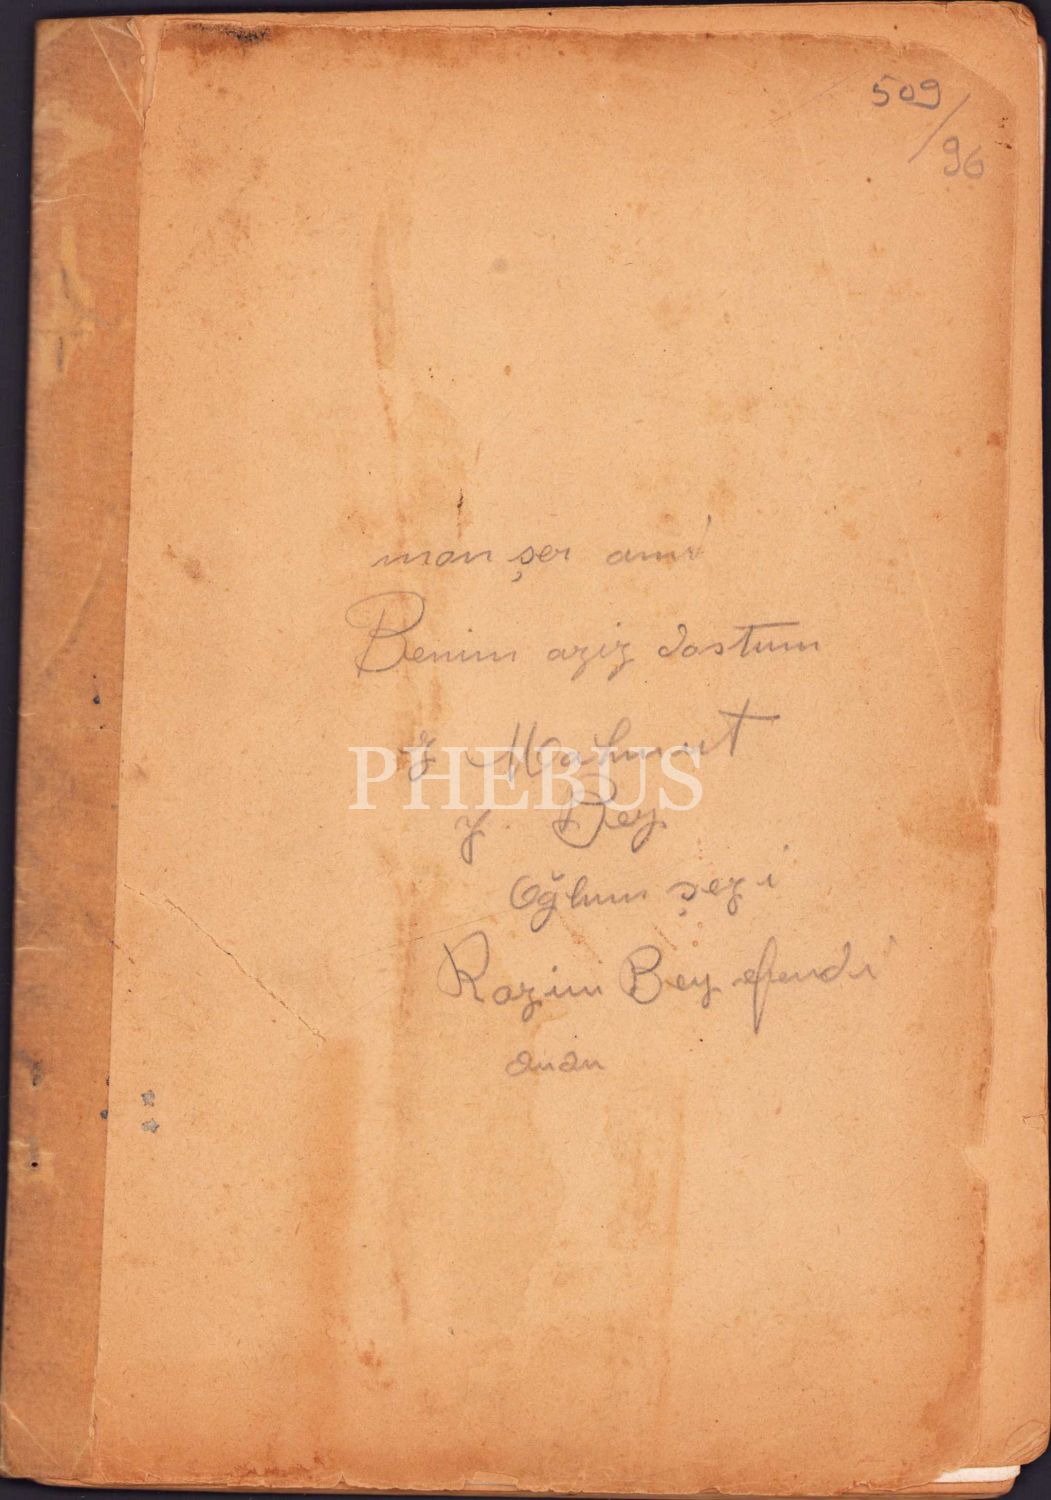 509
/
96
mon şer ami
Benim aziz dostum
y Mahmut
PHEBUS
y. Bey
Oğlum
Razim Bey efendi